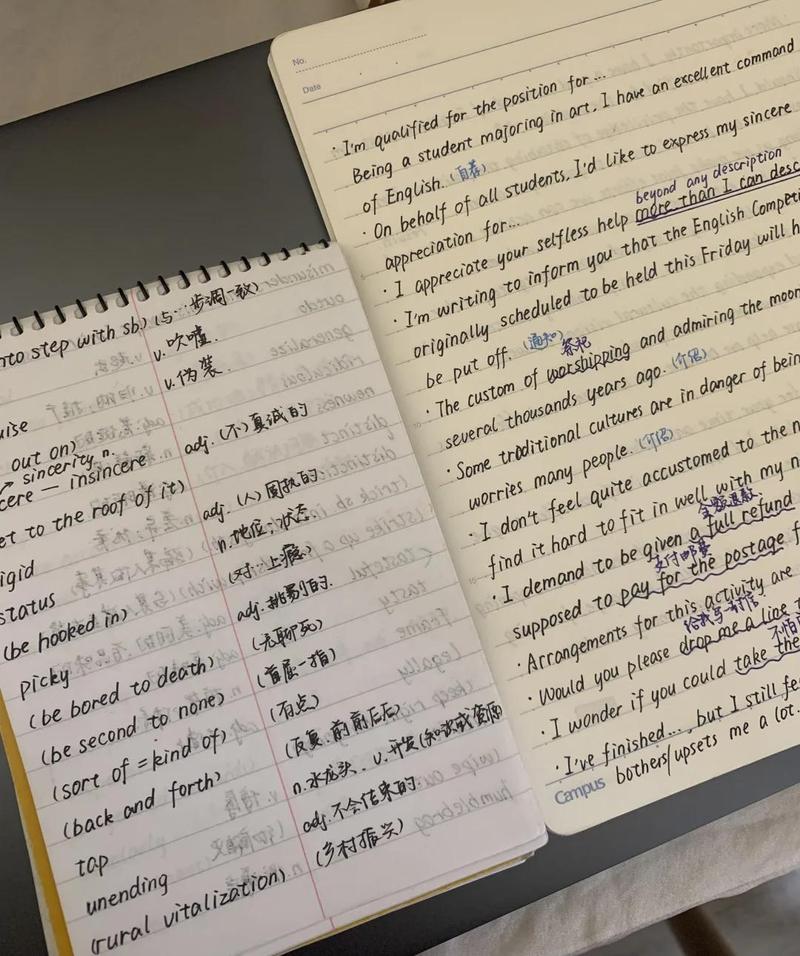 nto step with sb) (与…步调一致)
v. 吹嘘.
v. 伪装.
uise
out on)
sincerity n.
cere — insincere adj. (不)真诚的
et to the roof of it)
igid adj. (人)固执的.
status n. 地位;状态.
(be hooked in) (对…上瘾)
picky adj. 挑剔的.
(be bored to death) (无聊死)
(be second to none) (首屈一指)
(sort of = kind of) (有点)
(back and forth) (反复.前前后后)
tap n. 水龙头. v. 开发(知识或资源
unending adj. 不会结束的
(rural vitalization) (乡村振兴)
No.
Date
· I'm qualified for the position for ...
Being a student majoring in art, I have an excellent command
of English. (自荐)
· On behalf of all students, I'd like to express my sincere
appreciation for...
beyond any description
· I appreciate your selfless help more than I can desc
· I'm writing to inform you that the English Competi
originally scheduled to be held this Friday will h
be put off. (通知)
祭祀
· The custom of worshipping and admiring the moon
several thousands years ago. (介绍)
· Some traditional cultures are in danger of bein
worries many people. (介绍)
· I don't feel quite accustomed to the n
find it hard to fit in well with my n
全额退款
· I demand to be given a full refund
支付邮费
supposed to pay for the postage f
· Arrangements for this activity are
给我写封信
· Would you please drop me a line
不怕
· I wonder if you could take the
· I've finished..., but I still fe
bothers/upsets me a lot.
Campus